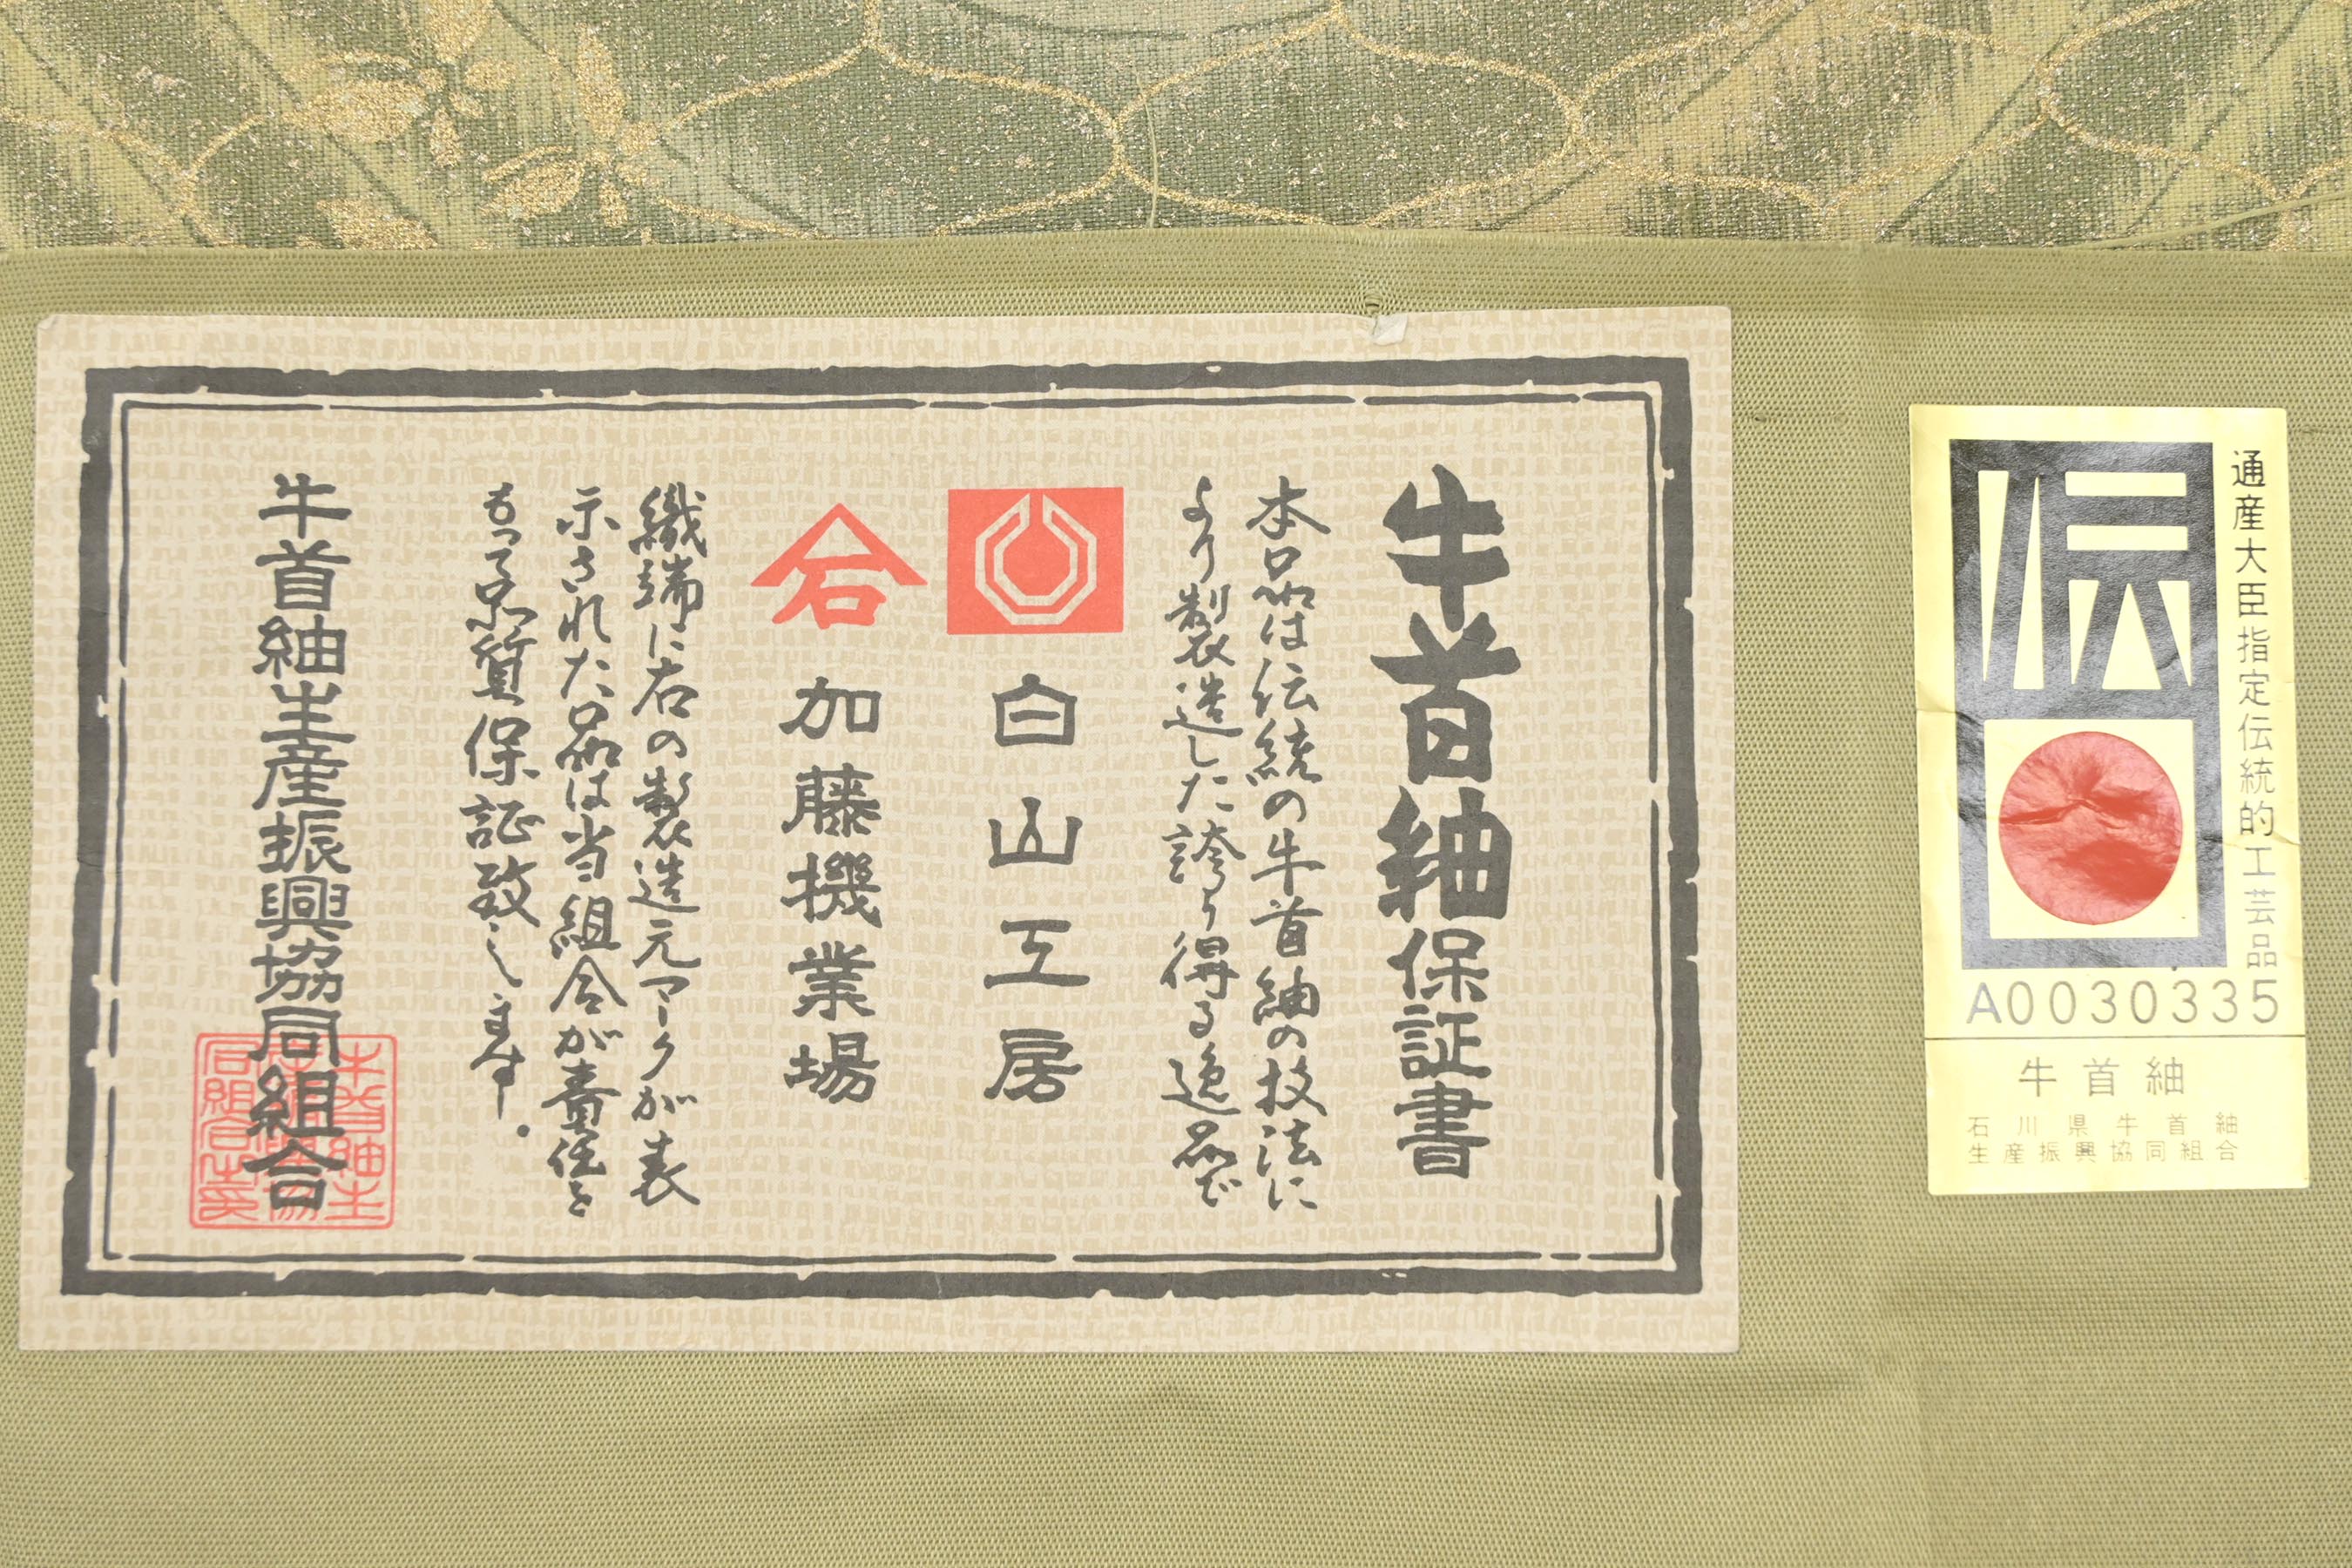 牛首紬保証書
本品は伝統の牛首紬の技法に
より製造した誇り得る逸品で
白山工房
石
加藤機業場
織端に右の製造元マークが表
示された品は当組合が責任を
もって品質保証致します。
牛首紬生産振興協同組合
通産大臣指定伝統的工芸品
伝
A0030335
牛首紬
石川県牛首紬
生産振興協同組合